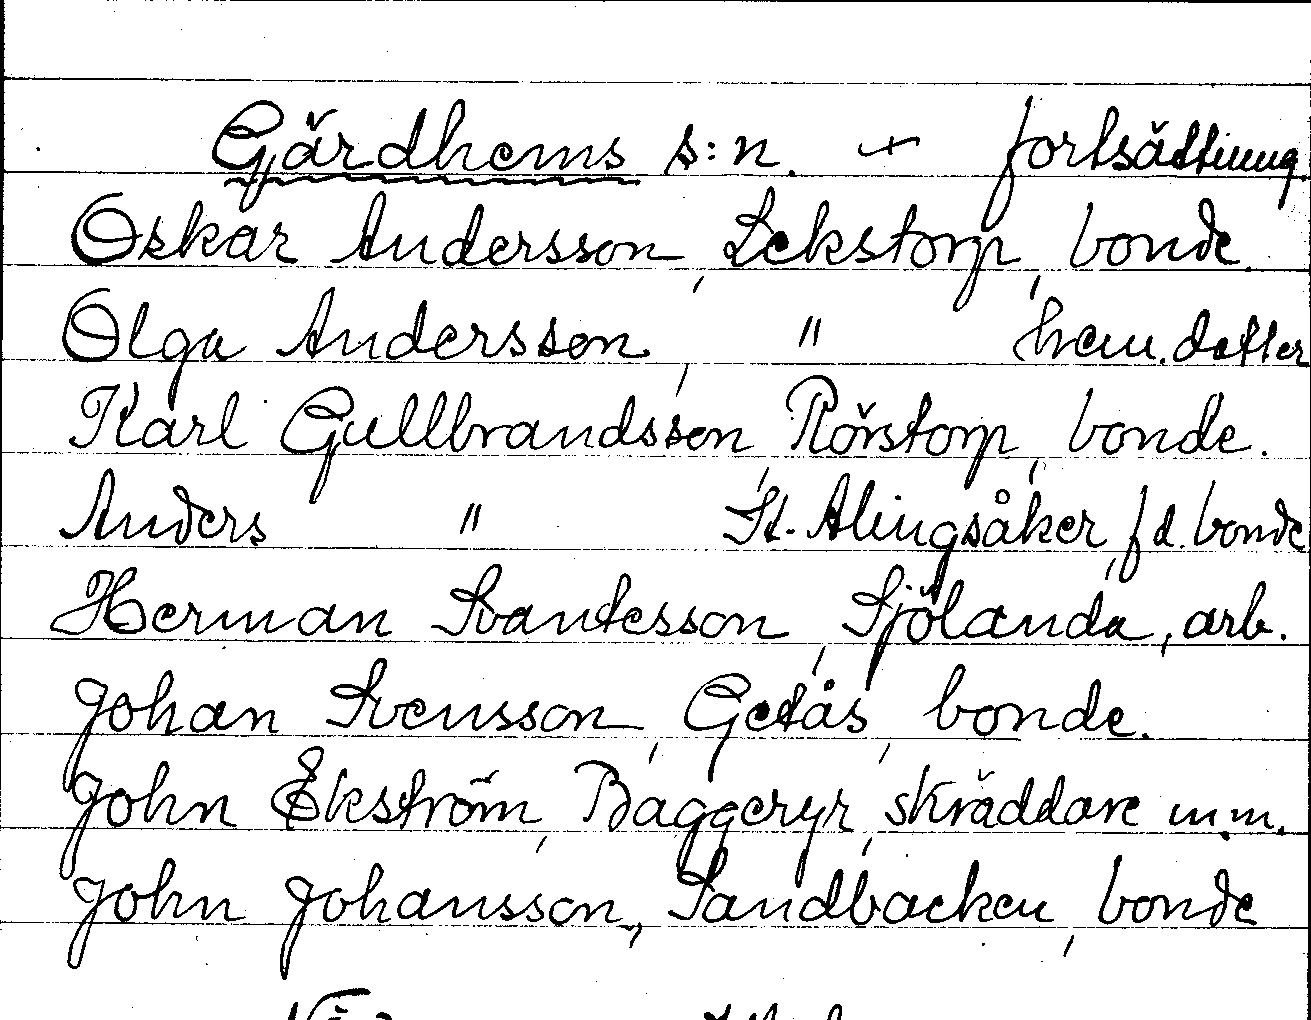 Gärdhems s:n. — fortsättning.
Oskar Andersson, Lekstorp, bonde.
Olga Andersson, " hem.dotter
Karl Gullbrandsson, Rörstorp, bonde.
Anders " St. Alingsåker, f d. bonde
Herman Svantesson, Sjölanda, arb.
Johan Svensson, Getås, bonde.
John Ekström, Baggeryr, skräddare m.m.
John Johansson, Sandbacken, bonde